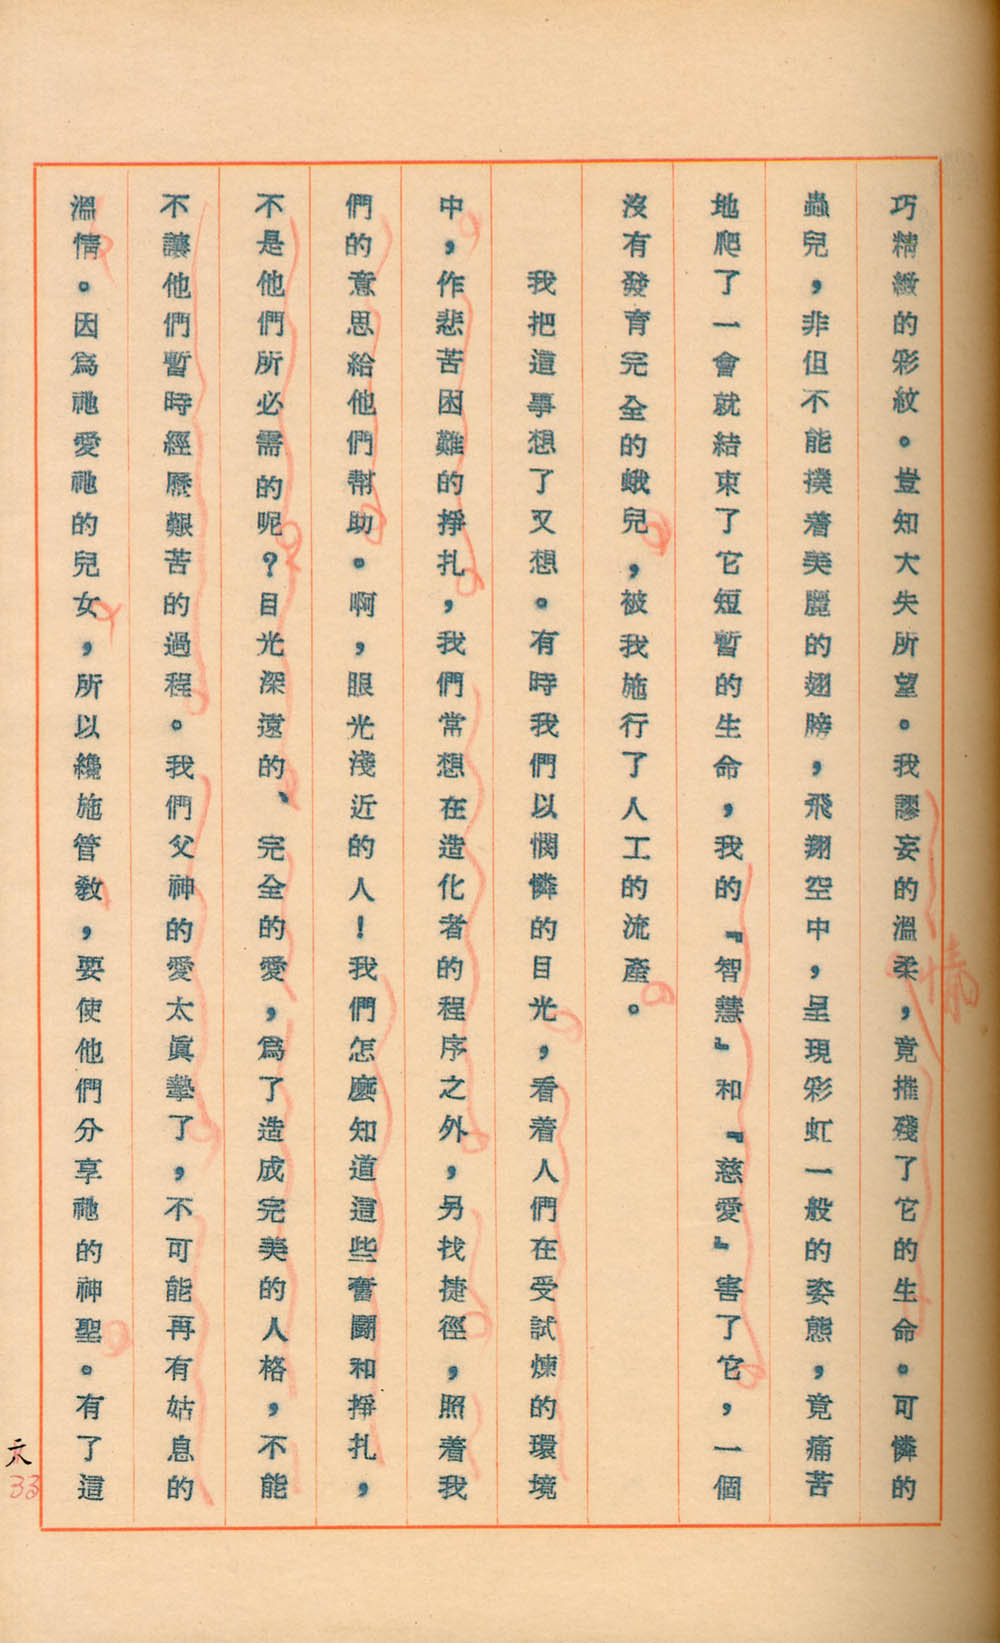 巧精緻的彩紋。豈知大失所望。我謬妄的溫柔，竟摧殘了它的生命。可憐的
蟲兒，非但不能撲着美麗的翅膀，飛翔空中，呈現彩虹一般的姿態，竟痛苦
地爬了一會就結束了它短暫的生命，我的『智慧』和『慈愛』害了它，一個
沒有發育完全的蛾兒，被我施行了人工的流產。
我把這事想了又想。有時我們以憫憐的目光，看着人們在受試煉的環境
中，作悲苦困難的掙扎，我們常想在造化者的程序之外，另找捷徑，照着我
們的意思給他們幫助。啊，眼光淺近的人！我們怎麼知道這些奮鬭和掙扎，
不是他們所必需的呢？目光深遠的、完全的愛，爲了造成完美的人格，不能
不讓他們暫時經歷艱苦的過程。我們父神的愛太眞摯了，不可能再有姑息的
溫情。因爲祂愛祂的兒女，所以纔施管教，要使他們分享祂的神聖。有了這
情
33